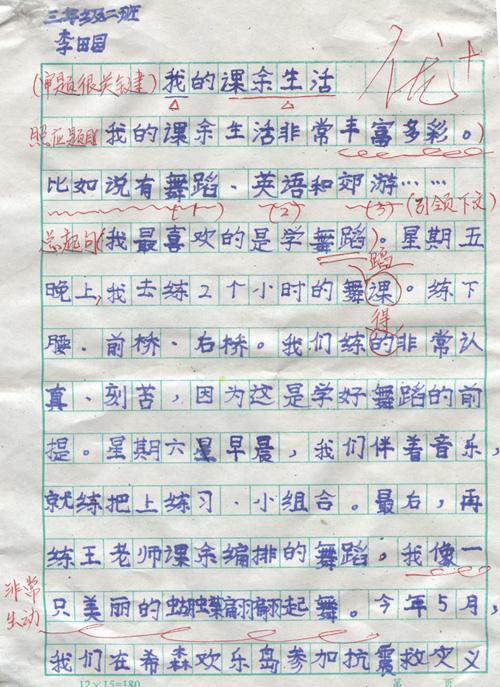 三年级二班
李田园
(审题很关键) 我的课余生活 优+
照应题目 我的课余生活非常丰富多彩。)
比如说有舞蹈、英语和郊游……
(1) (2) (3) (引领下文)
总起句 (我最喜欢的是学舞蹈)。星期五
蹈
晚上,我去练2个小时的舞课。练下
得
腰、前桥、右桥。我们练的非常认
真、刻苦,因为这是学好舞蹈的前
提。星期六星早晨,我们伴着音乐,
就练把上练习、小组合。最后,再
练王老师课余编排的舞蹈。我像一
非常
生动
只美丽的蝴蝶翩翩起舞。今年5月,
我们在希森欢乐岛参加抗震救灾义
12×15=180 第 页